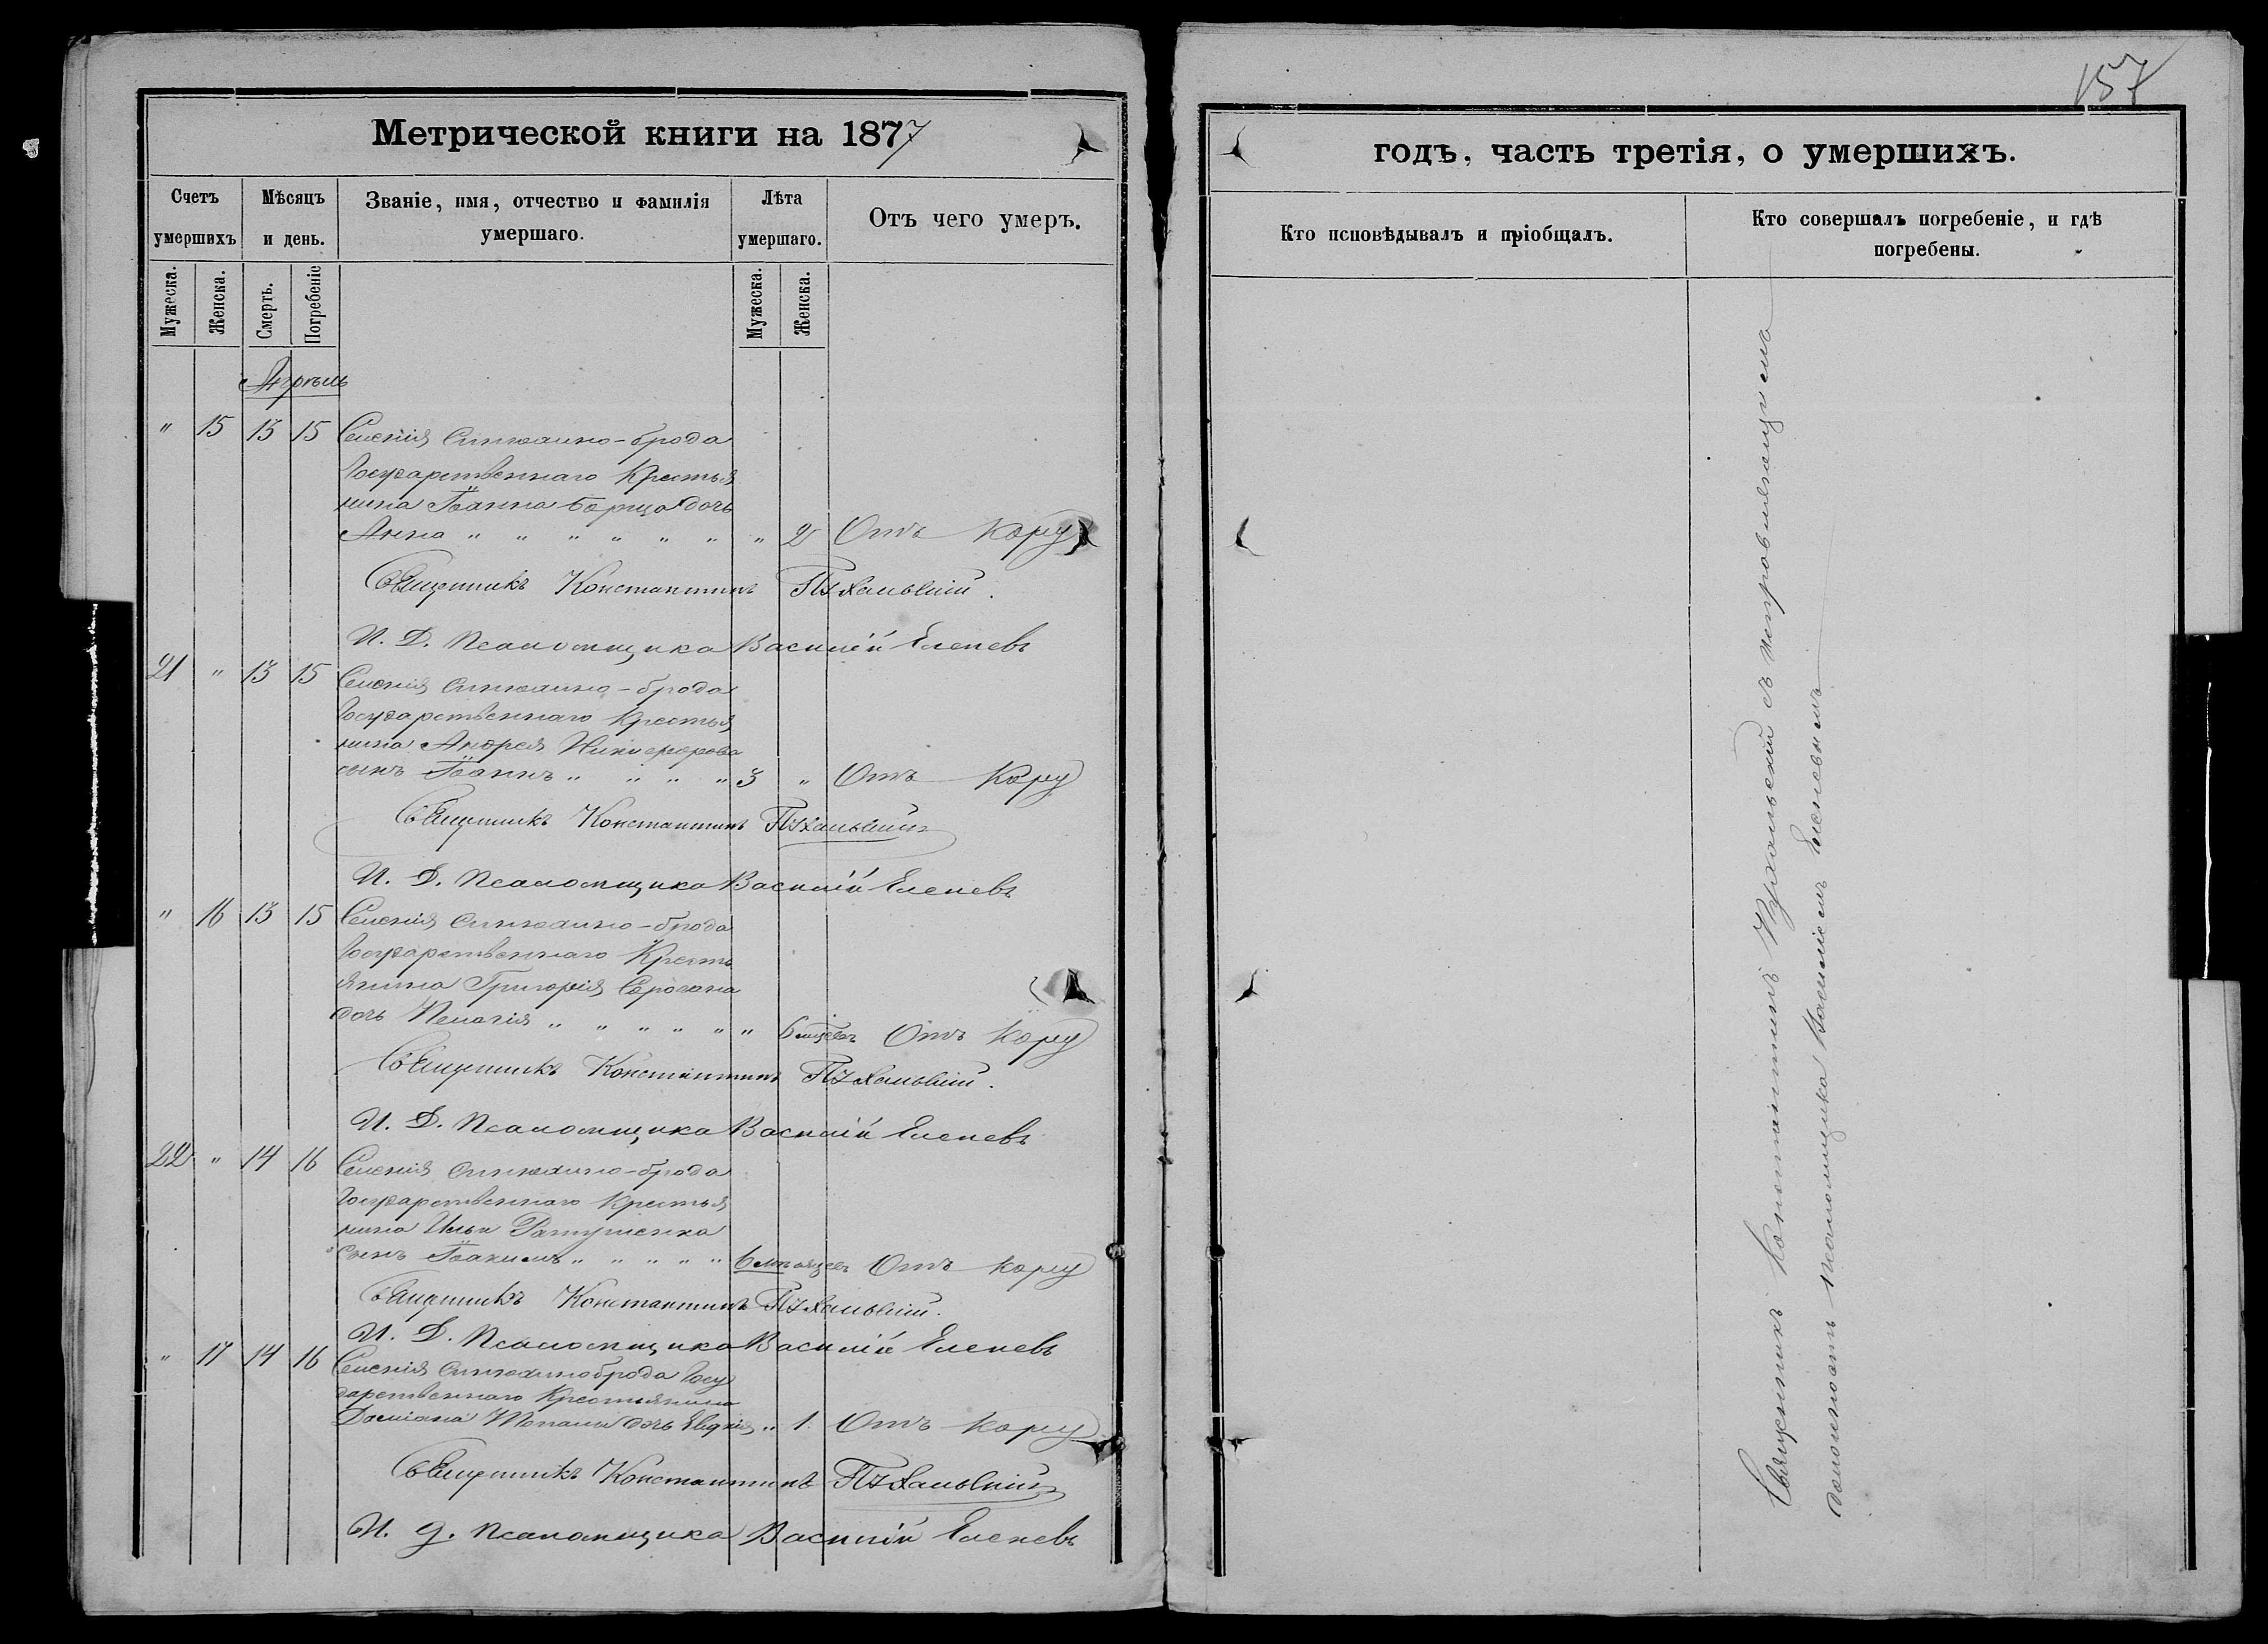 157
Метрической книги на 1877
годъ, часть третія, о умершихъ.
Счетъ умершихъ
Мѣсяцъ и день.
Званіе, имя, отчество и фамилія умершаго.
Лѣта умершаго.
Отъ чего умеръ.
Кто исповѣдывалъ и пріобщалъ.
Кто совершалъ погребеніе, и гдѣ погребены.
Мужеска.
Женска.
Смерть.
Погребеніе
Мужеска.
Женска.
Апрѣль
" 15 13 15 Селенія Синюхино-брода
Государственнаго Крестья
нина Іоанна Борща дочь
Анна " " " " " " " 2 Отъ Кору
Священникъ Константинъ Пухальскій.
И. Д. Псаломщика Василій Еленевъ
21 " 13 15 Селенія Синюхино-брода
Государственнаго Крестья
нина Андрея Никифорова
сынъ Іоаннъ " " " " 3 " Отъ Кору
Священникъ Константинъ Пухальскій
И. Д. Псаломщика Василій Еленевъ
" 16 13 15 Селенія Синюхино-брода
Государственнаго Кресть
янина Григорія
дочь Пелагія " " " " " " 6 Отъ Кору
Священникъ Константинъ Пухальскій.
И. Д. Псаломщика Василій Еленевъ
22 " 14 16 Селенія Синюхино-брода
Государственнаго Крестья
нина Ильи Ратушенка
сынъ Іоакимъ " " " " " 6 мѣсяцев Отъ Кору
Священникъ Константинъ Пухальскій.
И. Д. Псаломщика Василій Еленевъ
" 17 14 16 Селенія Синюхино брода Госу
дарственнаго Крестьянина
Даміана дочь " 1. Отъ Кору
Священникъ Константинъ Пухальскій
И. д. Псаломщика Василій Еленевъ
Священникъ Константинъ Пухальскій съ исправляющимъ
должность псаломщика Василіемъ Еленевымъ